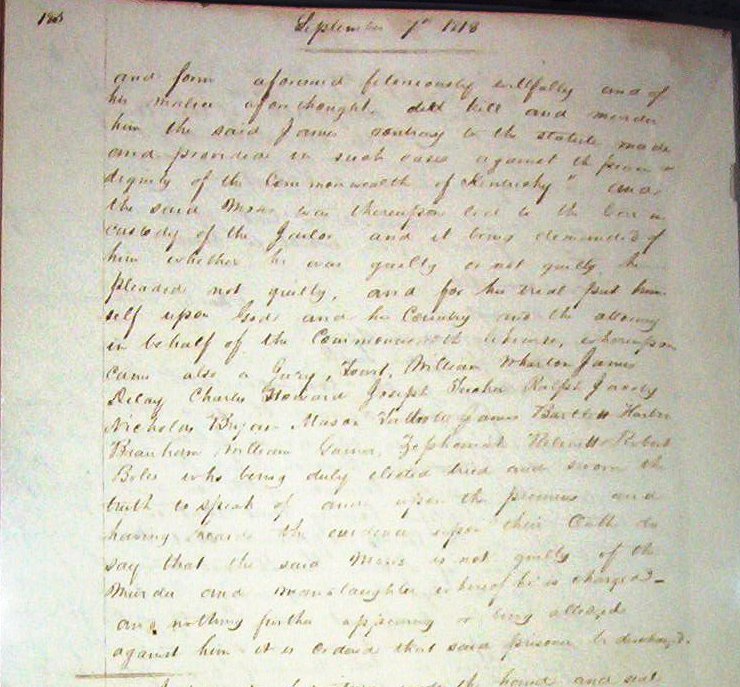 September 7th 1818
and form aforesaid feloniously willfully and of
his malice aforethought, did kill and murder
him the said James contrary to the statute made
and provided in such cases against the peace &
dignity of the Commonwealth of Kentucky" and
the said Moses was thereupon led to the bar in
custody of the Jailor and it being demanded of
him whether he was guilty or not guilty he
pleaded not guilty, and for his trial put him
self upon God and his Country and the attorney
in behalf of the Commonwealth likewise, whereupon
came also a Jury, Towit, William Wharton James
Delay Charles Howard Joseph Ralph Jacoby
Nicholas Mason James Bartlett
Branham William Zephemiah Robert
Boles who being duly elected tried and sworn the
truth to speak of and upon the premises and
having heard the evidence upon their Oath do
say that the said Moses is not guilty of the
Murder and manslaughter whereof he is charged
and nothing further appearing or being alledged
against him it is ordered that said prisoner be discharged.
hand and seal